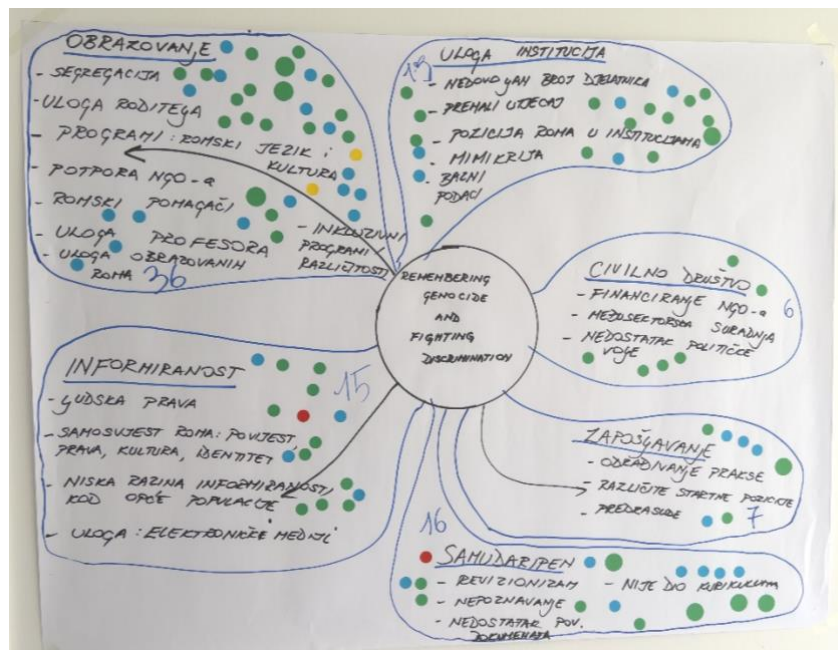 OBRAZOVANJE
- SEGREGACIJA
- ULOGA RODITEǤA
- PROGRAMI: ROMSKI JEZIK i
KULTURA
- POTPORA NGO-a
- ROMSKI POMAGAČI
- ULOGA PROFESORA
- ULOGA OBRAZOVANIH
ROMA 36
- INKLUZIVNI
PROGRAMI
RAZLIČITOSTI
ULOGA INSTITUCIJA
- NEDOVOǤAN BROJ DJELATNIKA
- PREMALI UTJECAJ
- POZICIJA ROMA U INSTITUCIJAMA
- MIMIKRIJA
PODACI
REMEMBERING
GENOCIDE
AND
FIGHTING
DISCRIMINATION
CIVILNO DRUŠTVO
- FINANCIRANJE NGO-a
6
- MEĐUSEKTORSKA SURADNJA
- NEDOSTATAK POLITIČKE
VOǤE
INFORMIRANOST
15
- ǤUDSKA PRAVA
- SAMOSVIJEST ROMA: POVIJEST
PRAVA, KULTURA, IDENTITET
- NISKA RAZINA INFORMIRANOSTI
KOD OPĆE POPULACIJE
- ULOGA: ELEKTRONIČKI MEDIJI
ZAPOŠǤAVANJE
- ODRAĐIVANJE PRAKSE
- RAZLIČITE STARTNE POZICIJE
- PREDRASUDE 7
16
SAMUDARIPEN
- REVIZIONIZAM
- NIJE DIO KURIKULUMA
- NEPOZNAVANJE
- NEDOSTATAK POV.
DOKUMENATA